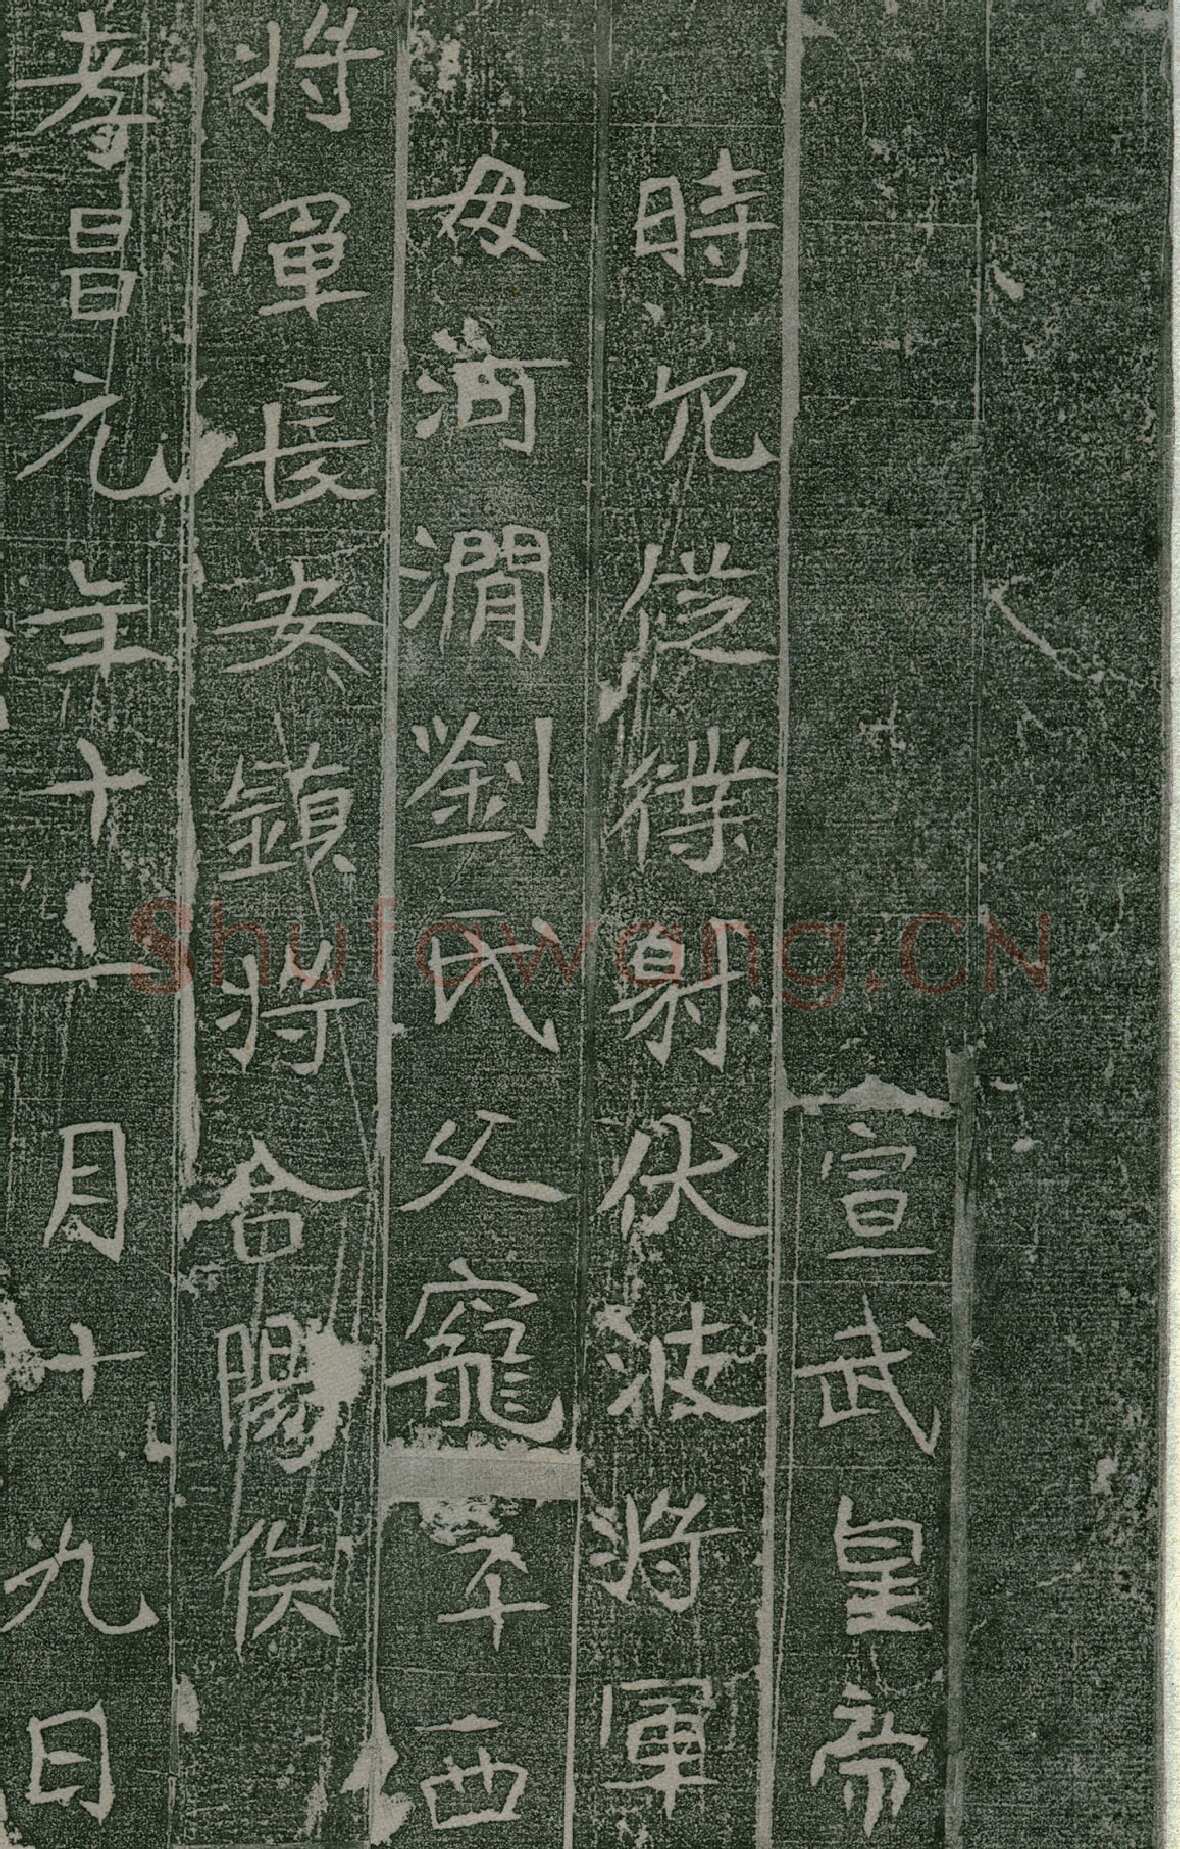 宣武皇帝
時冗從僕射伏波將軍
母河澗劉氏父寵平西
將軍長安鎮將合陽侯
孝昌元年十一月十九日
Shufawang.CN